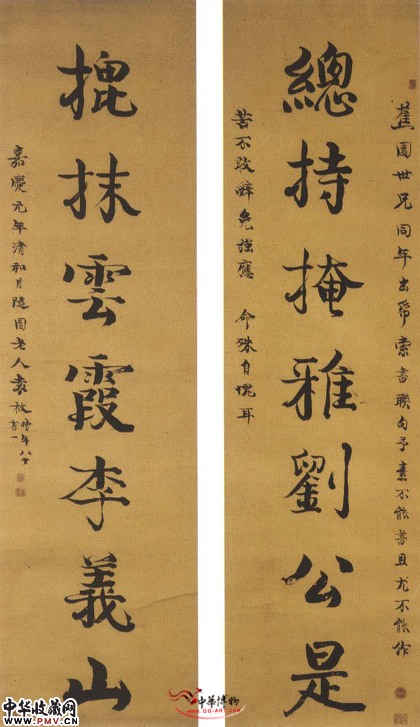 蕉園世兄同年出帋索書聯句予素不能書且尤不能作
總持掩雅劉公是
苦不敢辭勉強應命殊自愧耳
搃抹雲霞李義山
嘉慶元年清和月隨園老人袁枚時年八十有一
中华收藏网
www.PMV.CN
中華博物
www.gg-art.com